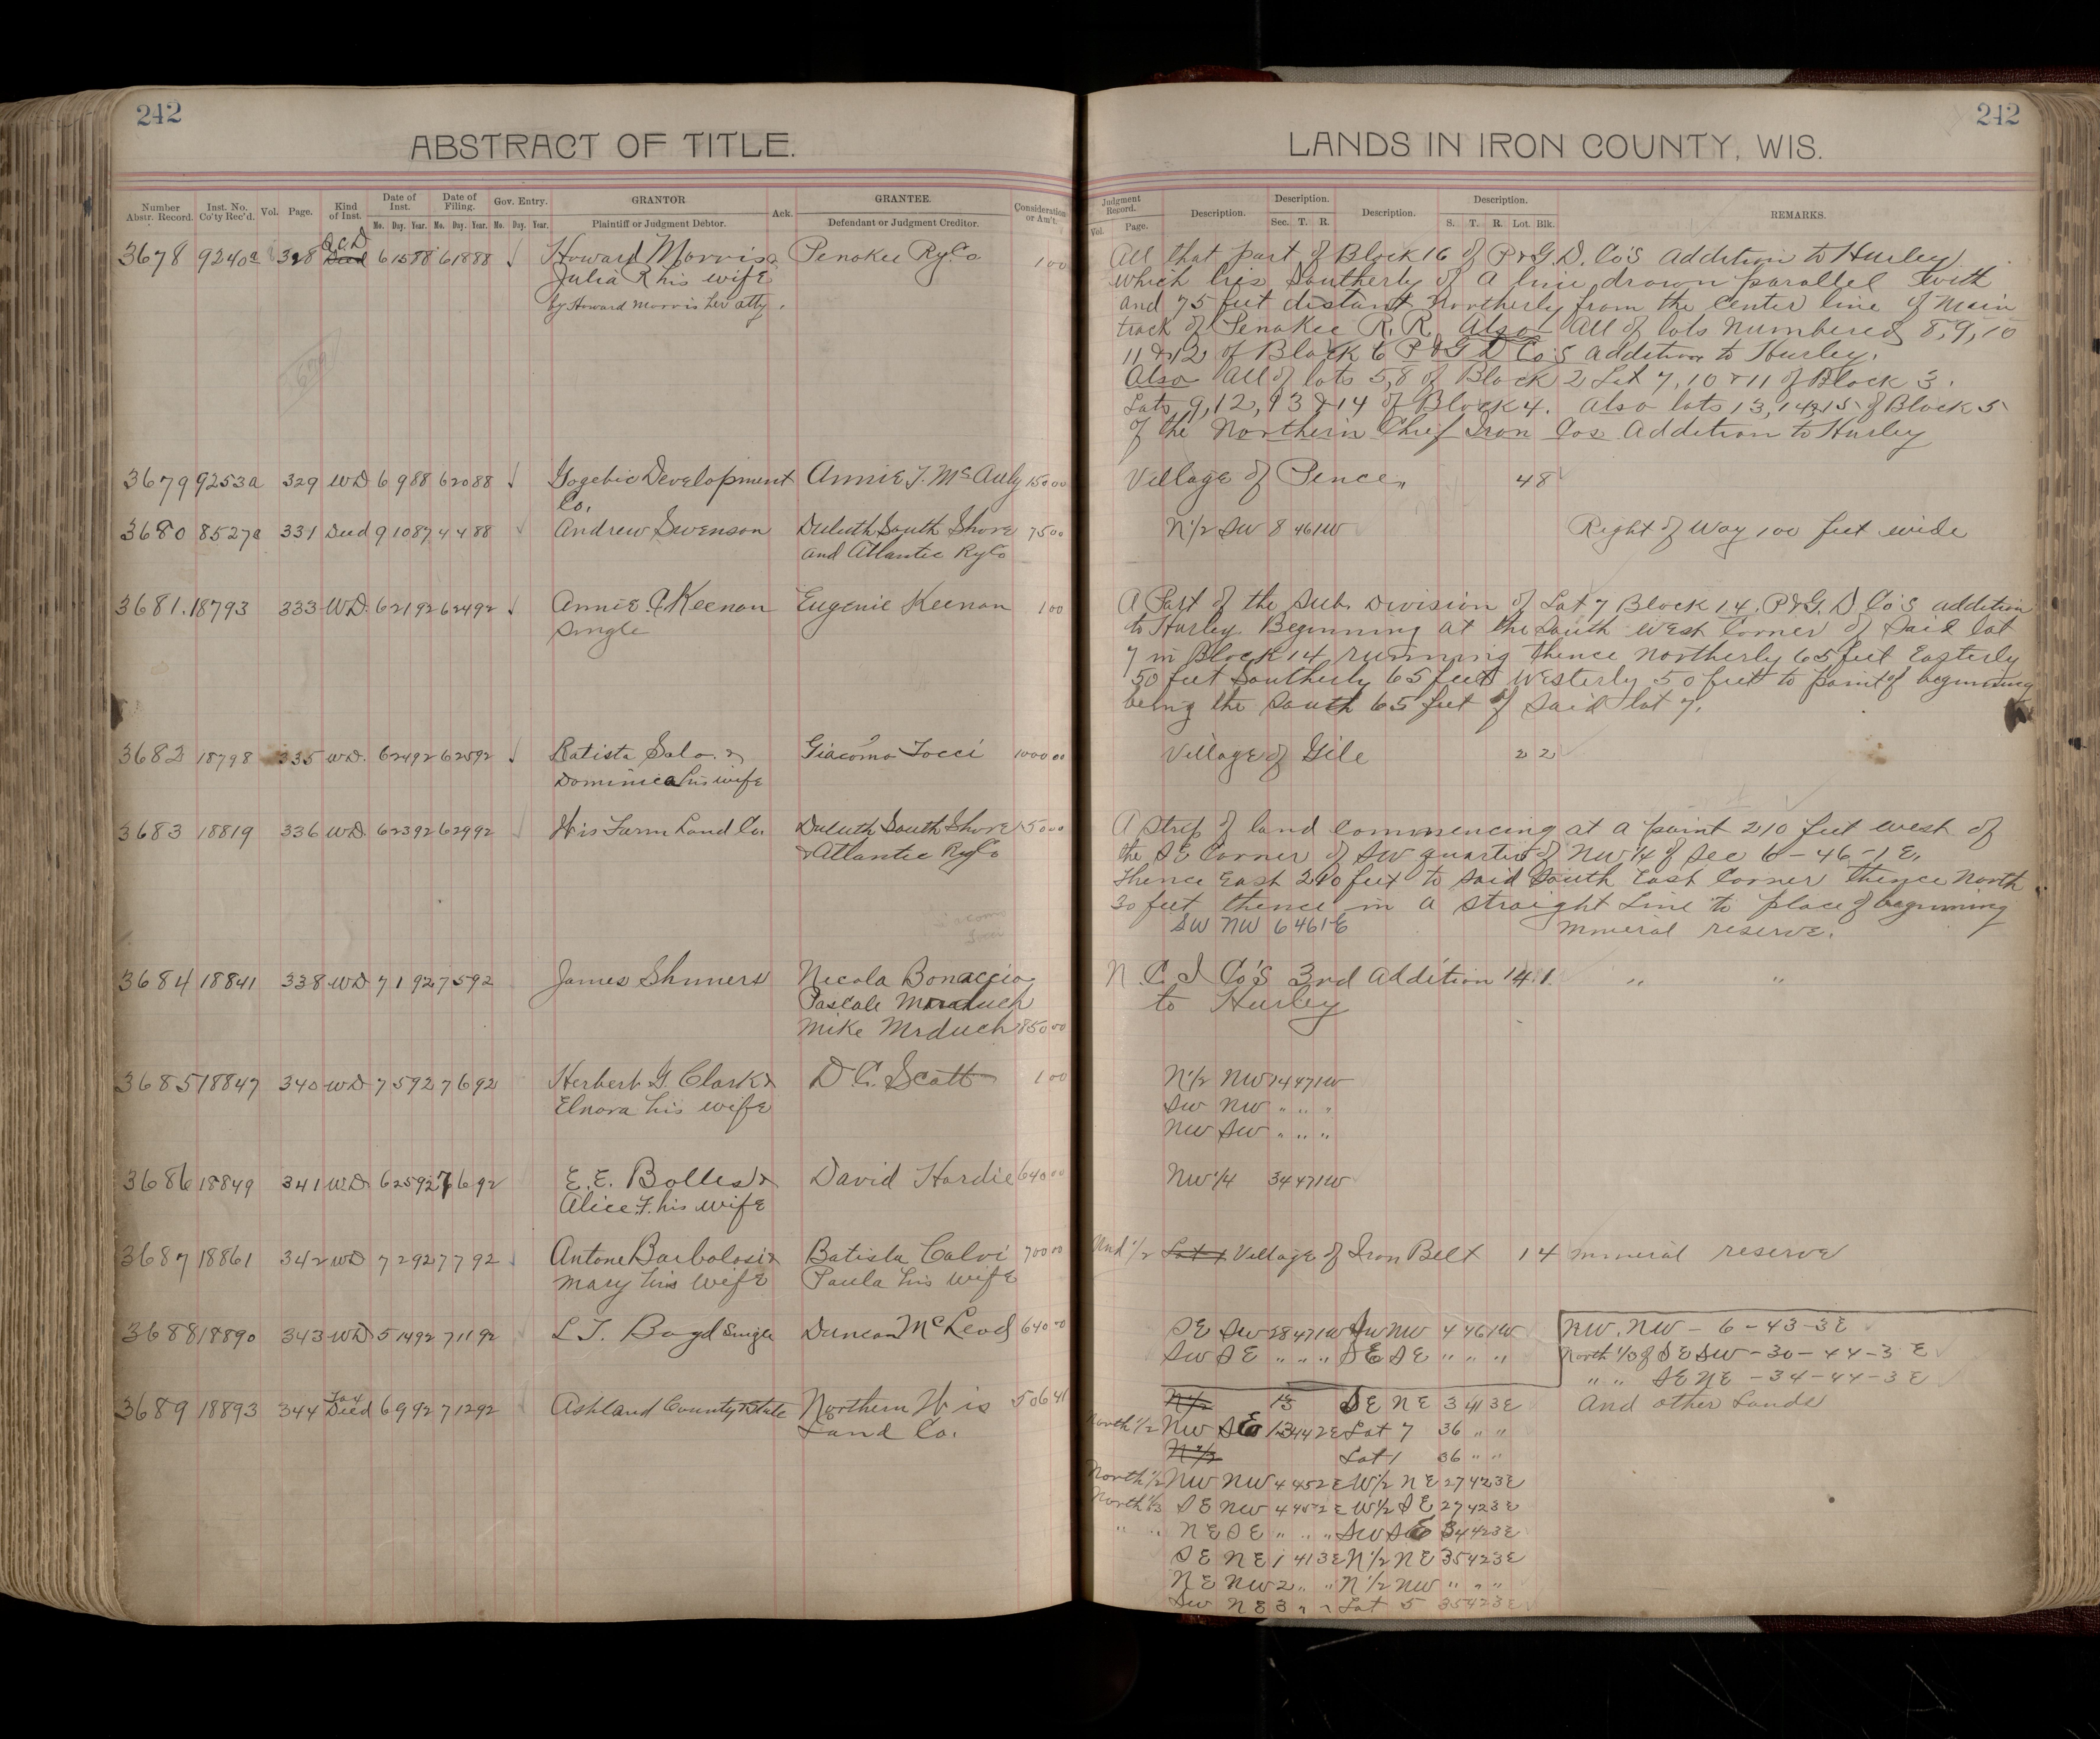 242
ABSTRACT OF TITLE.
Number Abstr. Record. Inst. No. Co'ty Rec'd. Vol. Page. Kind of Inst. Date of Inst. Date of Filing. Gov. Entry. GRANTOR Ack. GRANTEE. Consideration or Am't.
Mo. Day. Year. Mo. Day. Year. Mo. Day. Year. Plaintiff or Judgment Debtor. Defendant or Judgment Creditor.
Q.C.D
3678 9240a 328 Deed 6 15 88 6 18 88 Howard Morris & Penokee Ry Co 1 00
Julia R his wife
by Howard Morris her atty.
3679 9253a 329 WD 6 9 88 6 20 88 Gogebic Development Annie T. McAuly 150 00
Co.
3680 8527a 331 Deed 9 10 87 4 4 88 Andrew Swenson Duluth South Shore 75 00
and Atlantic Ry Co
3681. 18793 333 WD. 6 21 92 6 24 92 Annie C. Keenan Eugenie Keenan 1 00
Single
3682 18798 335 WD. 6 24 92 6 25 92 Batista Salo. & Giacomo Tocci 1000 00
Dominica his wife
3683 18819 336 WD. 6 23 92 6 29 92 Wis Farm Land Co. Duluth South Shore 150 00
& Atlantic Ry Co
Giacomo
Tocci
3684 18841 338 WD 7 1 92 7 5 92 James Shmers Nicola Bonaccio
Pascale
Mike Mrduch 850 00
3685 18847 340 WD 7 5 92 7 6 92 Herbert G. Clark & D. C. Scott 1 00
Elnora his wife
3686 18849 341 WD 6 25 92 7 6 92 E. E. Bolles & David Hardie 640 00
Alice F. his wife
3687 18861 342 WD 7 2 92 7 7 92 Antone Barbolosi & Batista Calvi 700 00
Mary his wife Paula his wife
3688 18890 343 WD 5 14 92 7 11 92 L T. Boyd Single Duncan McLeod 640 00
Tax
3689 18893 344 Deed 6 9 92 7 12 92 Ashland County & State Northern Wis 506 41
Land Co.
242
LANDS IN IRON COUNTY, WIS.
Judgment Record. Description. Description. Description. Description. REMARKS.
Vol. Page. Sec. T. R. S. T. R. Lot. Blk.
All that part of Block 16 of P & G. D. Co's addition to Hurley
which lies Southerly of a line drawn parallel with
and 75 feet distant northerly from the center line of Main
track of Penokee R. R. Also All of lots numbered 8, 9, 10
11 & 12 of Block 6 P & G D Co's addition to Hurley.
Also All of lots 5, 8 of Block 2 Lot 7, 10 & 11 of Block 3.
Lots 9, 12, 13 & 14 of Block 4. Also lots 13, 14 & 15 of Block 5
of the Northern Chief Iron Cos Addition to Hurley
Village of Pence, 4 8
N 1/2 SW 8 46 1W Right of Way 100 feet wide
A Part of the Sub. Division of Lot 7 Block 14. P & G. D Co's addition
to Hurley Beginning at the South West Corner of Said lot
7 in Block 14 running thence northerly 65 feet Easterly
50 feet Southerly 65 feet Westerly 50 feet to point of beginning
being the South 65 feet of Said lot 7.
Village of Gile 2 2
A Strip of land Commencing at a point 210 feet west of
the SE Corner of SW quarter of NW 1/4 of Sec 6 - 46 - 1 E.
thence East 210 feet to Said South East Corner thence North
30 feet thence in a straight line to place of beginning
SW NW 6 46 1 E mineral reserve.
N. C. I Co's 3rd Addition 14. 1. " "
to Hurley
N 1/2 NW 14 47 1W
SW NW " " "
NW SW " " "
NW 1/4 34 47 1W
Und 1/2 Lot 1 Village of Iron Belt 1 4 mineral reserve
SE SW 28 47 1W SW NW 4 46 1W NW. NW - 6 - 43 - 3 E
SW SE " " " SE SE " " " North 1/3 of SE SW - 30 - 44 - 3 E
" " SE NE - 34 - 44 - 3 E
N 1/2 13 SE NE 3 41 3E And other Lands
North 1/2 NW SE 13 44 2E Lot 7 36 " "
N 1/2 Lot 1 36 " "
North 1/2 NW NW 4 45 2E W 1/2 NE 27 42 3E
North 1/3 SE NW 4 45 2E W 1/2 SE 27 42 3E
" " NE SE " " " SW SE 34 42 3E
SE NE 1 41 3E N 1/2 NE 35 42 3E
NE NW 2 " " N 1/2 NW " " "
SW NE 3 " " Lot 5 35 42 3E